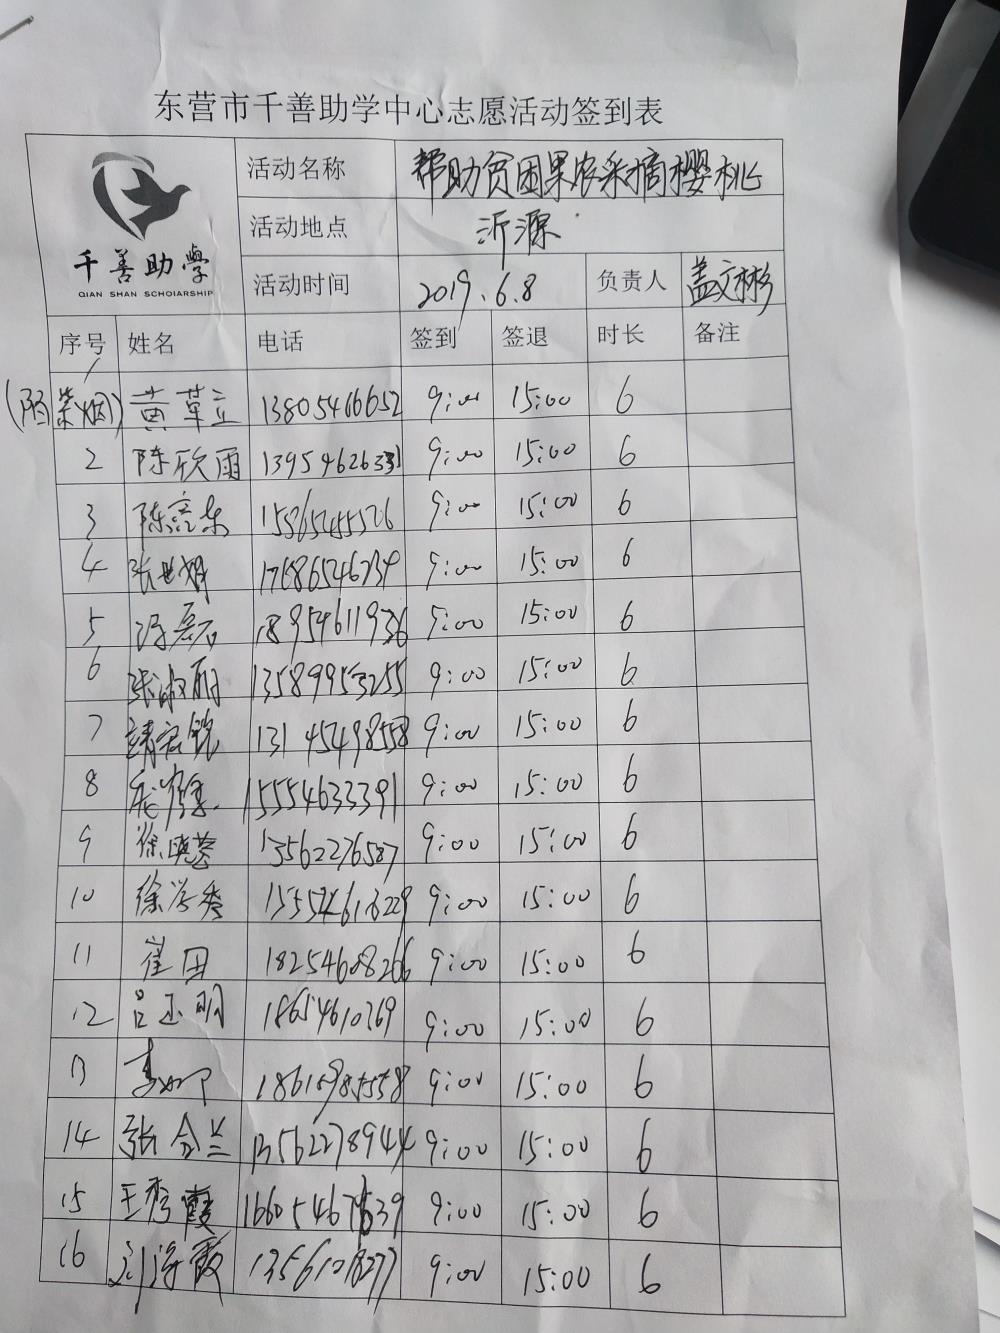 东营市千善助学中心志愿活动签到表
千善助學
QIAN SHAN SCHOIARSHIP
活动名称 帮助贫困果农采摘樱桃
活动地点 沂源
活动时间 2019.6.8 负责人 盖文彬
序号 姓名 电话 签到 签退 时长 备注
1 黄草立 13805466652 9:00 15:00 6
2 陈欣雨 13954626331 9:00 15:00 6
3 陈亮东 15865455526 9:00 15:00 6
4 张世娥 17686546734 9:00 15:00 6
5 冯磊 18954611936 9:00 15:00 6
6 张淑丽 13589953255 9:00 15:00 6
7 靖宏锐 13145498558 9:00 15:00 6
8 15554633391 9:00 15:00 6
9 徐晓蓉 13562276587 9:00 15:00 6
10 徐学秀 15554616229 9:00 15:00 6
11 崔田 18254608266 9:00 15:00 6
12 吕玉明 18654610769 9:00 15:00 6
13 18615985558 9:00 15:00 6
14 张会兰 13562278944 9:00 15:00 6
15 王秀霞 9:00 15:00 6
16 刘海霞 13561018277 9:00 15:00 6